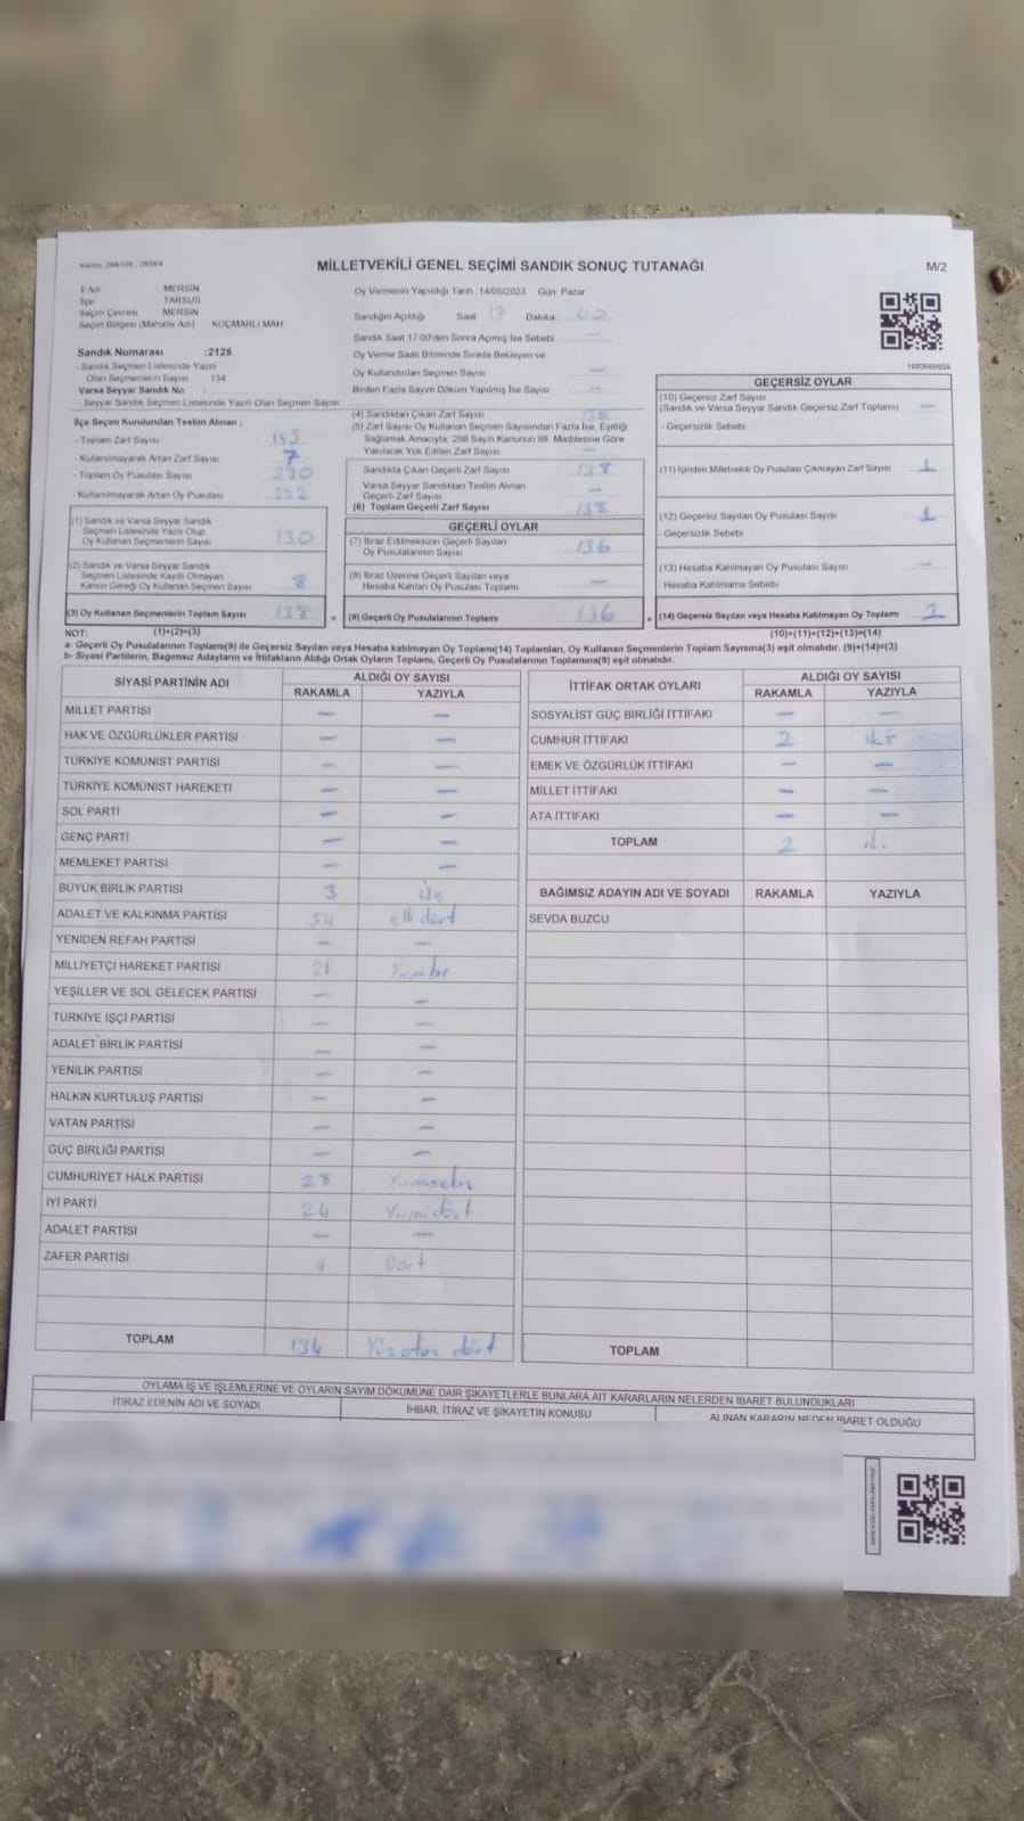 MİLLETVEKİLİ GENEL SEÇİMİ SANDIK SONUÇ TUTANAĞI
M/2
İl Adı : MERSİN
İlçe : TARSUS
Seçim Çevresi : MERSİN
Seçim Bölgesi (Mahalle Adı) : KOÇMARLI MAH
Oy Vermenin Yapıldığı Tarih :14/05/2023 Gün: Pazar
Sandığın Açıldığı Saat 17 Dakika
Sandık Saat 17:00'den Sonra Açılmış İse Sebebi
Oy Verme Saati Bitiminde Sırada Bekleyen ve
Oy Kullandırılan Seçmen Sayısı —
Birden Fazla Sayım Döküm Yapılmış İse Sayısı —
Sandık Numarası :2125
- Sandık Seçmen Listesinde Yazılı
Olan Seçmenlerin Sayısı : 134
Varsa Seyyar Sandık No :
Seyyar Sandık Seçmen Listesinde Yazılı Olan Seçmen Sayısı
İlçe Seçim Kurulundan Teslim Alınan :
- Toplam Zarf Sayısı
- Kullanılmayarak Artan Zarf Sayısı 7
- Toplam Oy Pusulası Sayısı
- Kullanılmayarak Artan Oy Pusulası
(1) Sandık ve Varsa Seyyar Sandık
Seçmen Listesinde Yazılı Olup
Oy Kullanan Seçmenlerin Sayısı 130
(2) Sandık ve Varsa Seyyar Sandık
Seçmen Listesinde Kayıtlı Olmayan
Kanun Gereği Oy Kullanan Seçmen Sayısı 8
(3) Oy Kullanan Seçmenlerin Toplam Sayısı 138 =
(4) Sandıktan Çıkan Zarf Sayısı 138
(5) Zarf Sayısı Oy Kullanan Seçmen Sayısından Fazla İse, Eşitliği
Sağlamak Amacıyla, 298 Sayılı Kanunun 98. Maddesine Göre
Yakılacak Yok Edilen Zarf Sayısı —
Sandıkta Çıkan Geçerli Zarf Sayısı 138
Varsa Seyyar Sandıktan Teslim Alınan
Geçerli Zarf Sayısı —
(6) Toplam Geçerli Zarf Sayısı 138
GEÇERLİ OYLAR
(7) İtiraz Edilmeksizin Geçerli Sayılan
Oy Pusulalarının Sayısı 136
(8) İtiraz Üzerine Geçerli Sayılan veya
Hesaba Katılan Oy Pusulası Toplamı —
(9) Geçerli Oy Pusulalarının Toplamı 136 +
GEÇERSİZ OYLAR
(10) Geçersiz Zarf Sayısı
(Sandık ve Varsa Seyyar Sandık Geçersiz Zarf Toplamı) —
- Geçersizlik Sebebi
(11) İçinden Milletvekili Oy Pusulası Çıkmayan Zarf Sayısı 1
(12) Geçersiz Sayılan Oy Pusulası Sayısı 1
- Geçersizlik Sebebi
(13) Hesaba Katılmayan Oy Pusulası Sayısı —
Hesaba Katılmama Sebebi
(14) Geçersiz Sayılan veya Hesaba Katılmayan Oy Toplamı 2
NOT: (1)+(2)=(3) (10)+(11)+(12)+(13)=(14)
a- Geçerli Oy Pusulalarının Toplamı(9) ile Geçersiz Sayılan veya Hesaba katılmayan Oy Toplamı(14) Toplamları, Oy Kullanan Seçmenlerin Toplam Sayısına(3) eşit olmalıdır. (9)+(14)=(3)
b- Siyasi Partilerin, Bağımsız Adayların ve İttifakların Aldığı Ortak Oyların Toplamı, Geçerli Oy Pusulalarının Toplamına(9) eşit olmalıdır.
SİYASİ PARTİNİN ADI ALDIĞI OY SAYISI
RAKAMLA YAZIYLA
MİLLET PARTİSİ — —
HAK VE ÖZGÜRLÜKLER PARTİSİ — —
TÜRKİYE KOMÜNİST PARTİSİ — —
TÜRKİYE KOMÜNİST HAREKETİ — —
SOL PARTİ — —
GENÇ PARTİ — —
MEMLEKET PARTİSİ — —
BÜYÜK BİRLİK PARTİSİ 3 üç
ADALET VE KALKINMA PARTİSİ 54 elli dört
YENİDEN REFAH PARTİSİ — —
MİLLİYETÇİ HAREKET PARTİSİ 21 Yirmibir
YEŞİLLER VE SOL GELECEK PARTİSİ — —
TÜRKİYE İŞÇİ PARTİSİ — —
ADALET BİRLİK PARTİSİ — —
YENİLİK PARTİSİ — —
HALKIN KURTULUŞ PARTİSİ — —
VATAN PARTİSİ — —
GÜÇ BİRLİĞİ PARTİSİ — —
CUMHURİYET HALK PARTİSİ 28 Yirmisekiz
İYİ PARTİ 24 Yirmi dört
ADALET PARTİSİ — —
ZAFER PARTİSİ 4 Dört
TOPLAM 134 Yüzotuz dört
İTTİFAK ORTAK OYLARI ALDIĞI OY SAYISI
RAKAMLA YAZIYLA
SOSYALİST GÜÇ BİRLİĞİ İTTİFAKI — —
CUMHUR İTTİFAKI 2 iki
EMEK VE ÖZGÜRLÜK İTTİFAKI — —
MİLLET İTTİFAKI — —
ATA İTTİFAKI — —
TOPLAM 2
BAĞIMSIZ ADAYIN ADI VE SOYADI RAKAMLA YAZIYLA
SEVDA BUZCU
TOPLAM
OYLAMA İŞ VE İŞLEMLERİNE VE OYLARIN SAYIM DÖKÜMÜNE DAİR ŞİKAYETLERLE BUNLARA AİT KARARLARIN NELERDEN İBARET BULUNDUKLARI
İTİRAZ EDENİN ADI VE SOYADI
İHBAR, İTİRAZ VE ŞİKAYETİN KONUSU
ALINAN KARARIN NEDEN İBARET OLDUĞU